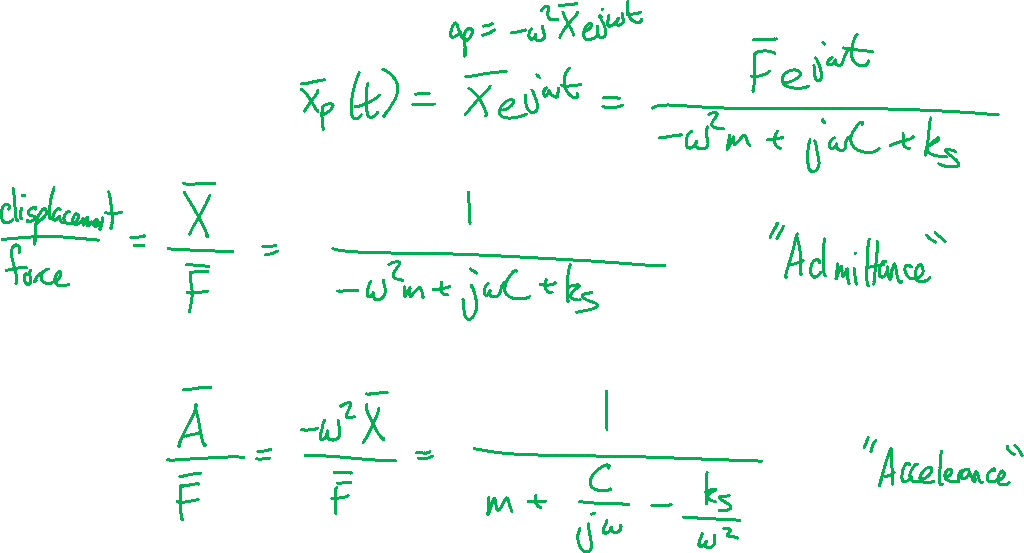 a_p = -ω² X̄ e^{jωt}
x̄_p(t) = X̄ e^{jωt} = F̄ e^{jωt} / (-ω²m + jωC + k_s)
displacement / force = X̄ / F̄ = 1 / (-ω²m + jωC + k_s) "Admittance"
Ā / F̄ = -ω² X̄ / F̄ = 1 / (m + C/(jω) - k_s/ω²) "Accelerance"